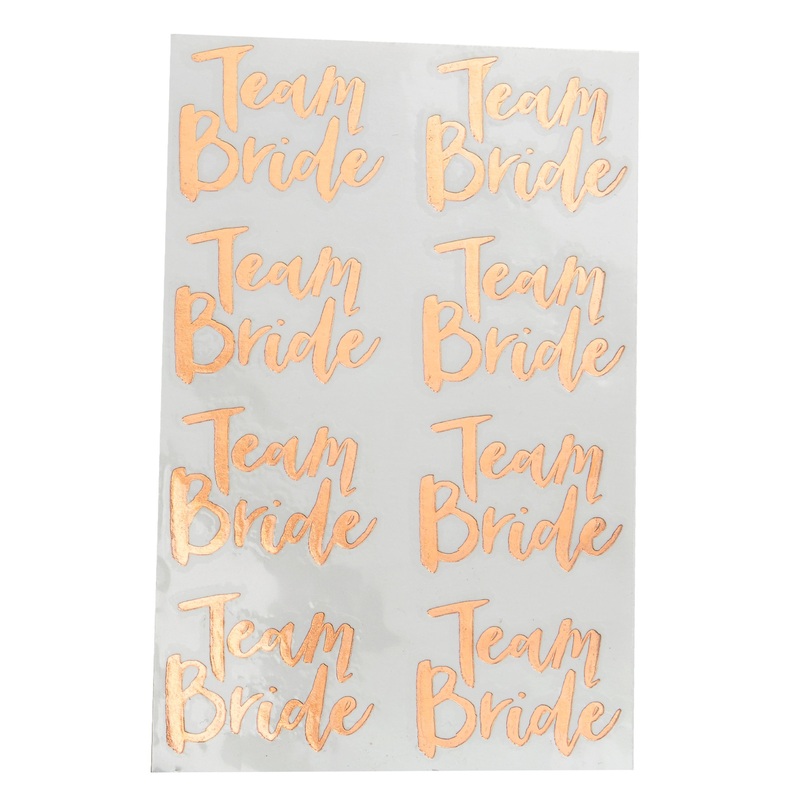 Team Team
Bride Bride
Team Team
Bride Bride
Team Team
Bride Bride
Team Team
Bride Bride